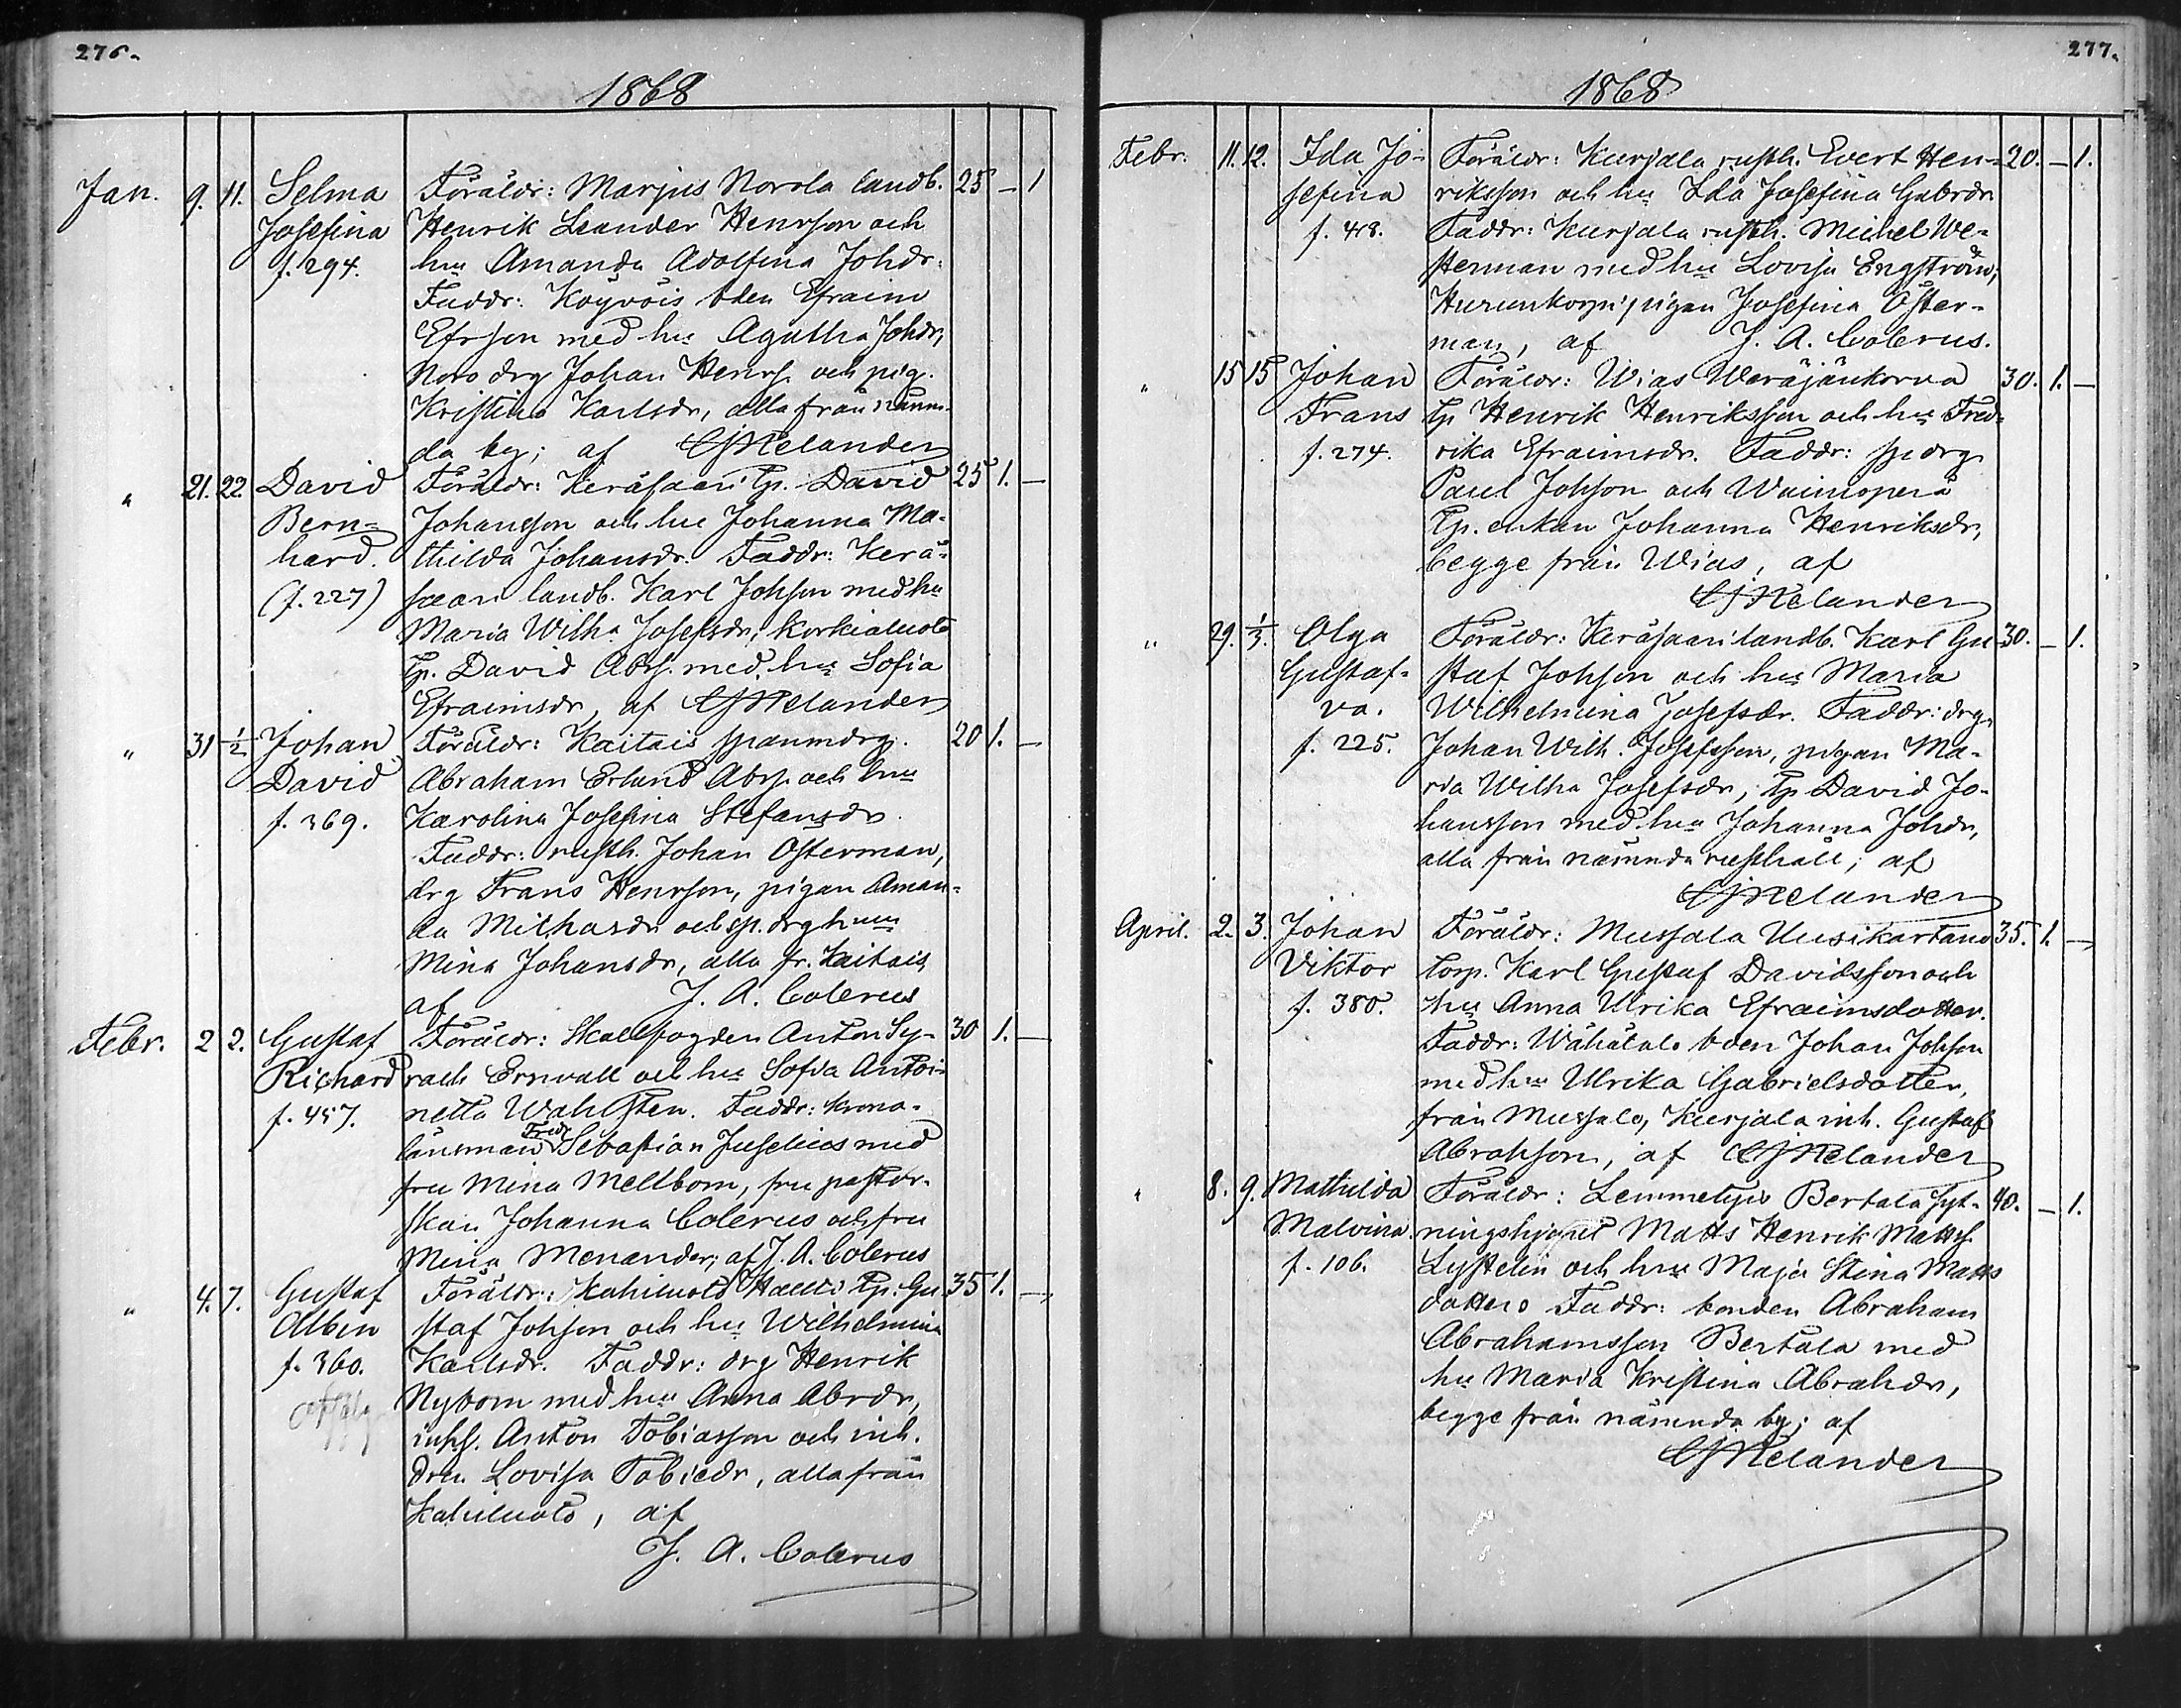 276.
1868
Jan. 9. 11. Selma Föräldr: Marjus Norola landb. 25 – 1
Josefina Henrik Leander Henrsson och
f. 294. hu Amanda Adolfina Johdr.
Faddr: Köyvöis bden Efraim
Efrsson med hu Agatha Johdr,
Noro drg Johan Henrs. och pig.
Kristina Karlsdr, alla från nämn-
da by; af CJMelander
" 21. 22. David Föräldr: Keräsaari tp. David 25 1. –
Bern- Johansson och hu Johanna Ma-
hard. thilda Johansdr. Faddr: Kerä-
(f. 227) saari landb. Karl Johsson med hu
Maria Wilha Josefsdr, Korkialuoto
tp. David Abrs. med hu Sofia
Efraimsdr, af CJMelander
" 31 1/2 Johan Föräldr: Kaitais spanmdrg. 20 1. –
David Abraham Erland Abrs. och hu
f. 369. Karolina Josefina Stefansdr
Faddr: rusth. Johan Osterman,
drg Frans Henrsson, pigan Aman-
da Michasdr och sp. drg hu
Mina Johansdr, alla fr. Kaitais
af J. A. Colerus
Febr. 2 2. Gustaf Föräldr: Skallfogden Anton Sy- 30 1. –
Richard rach Ernvall och hu Sofia Antoi-
f. 457. netta Wahlsten. Faddr: krono-
länsman Fredr Sebastian Juselius med
fru Mina Mellbom, fru pastor-
skan Johanna Colerus och fru
Mina Menander; af J. A. Colerus
" 4. 7. Gustaf Föräldr: Kahiluoto Tp. Gu- 35 1. –
Albin staf Johsson och hu Wilhelmina
f. 360. Karlsdr. Faddr: drg Henrik
Nybom med hu Anna Abrdr,
inhs. Anton Tobiasson och inh.
drn Lovisa Tobiedr, alla från
Kahiluoto, af
J. A. Colerus
277.
1868
Febr. 11. 12. Ida Jo- Föräldr: Kurjala rusth. Evert Hen- 20. – 1.
sefina riksson och hu Ida Josefina Gabrdr
f. 418. Faddr: Kurjala rusth. Michel We-
sterman med hu Lovisa Engström,
Hurunkorpi pigan Josefina Öster-
man, af J. A. Colerus.
" 15 15 Johan Föräldr: Wias Weräjänkorva 30. 1. –
Frans tp Henrik Henriksson och hu Fred-
f. 274. rika Efraimsdr. Faddr: sp drg
Paul Johsson och Wainioperä
Tp. enkan Johanna Henriksdr,
begge från Wias, af
CJMelander
" 29. 1/3. Olga Föräldr: Keräsaari landb. Karl Gu- 30. – 1.
Gustaf- staf Johsson och hu Maria
va. Wilhelmina Josefsdr. Faddr: drg.
f. 225. Johan Wilh. Josefsson, pigan Ma-
ria Wilha Josefsdr, tp David Jo-
hansson med hu Johanna Johdr,
alla från nämnda rusthåll; af
CJMelander
April. 2. 3. Johan Föräldr: Mussala Uusikartano 35. 1. –
Viktor torp. Karl Gustaf Davidsson och
f. 380. hu Anna Ulrika Efraimsdotter.
Faddr: Wähätalo bden Johan Johsson
med hu Ulrika Gabrielsdotter,
från Mussalo, Kurjala inh. Gustaf
Abrahsson, af CJMelander
" 8. 9. Mathilda Föräldr: Lemmetyis Bertala syt- 40. – 1.
Malvina. ningshjonet Matts Henrik Matts.
f. 106. Lystelin och hu Maja Stina Matts
dotters Faddr: bonden Abraham
Abrahamsson Bertala med
hu Maria Kristina Abrahdr,
begge från nämnda by; af
CJMelander